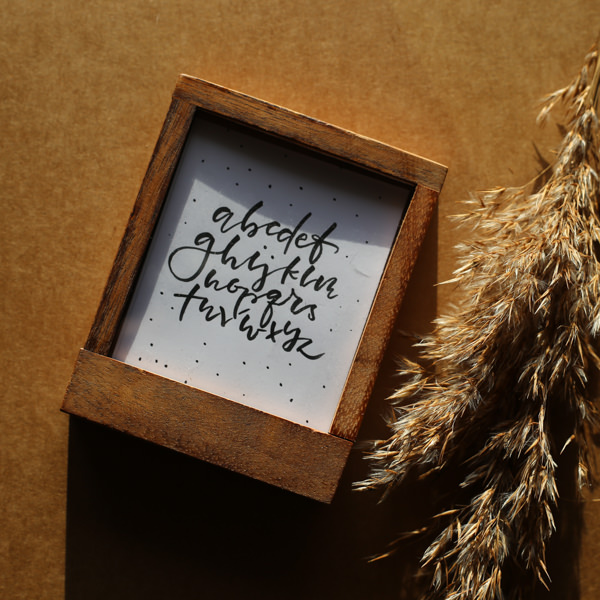 abcdef
ghijklm
nopqrs
tuvwxyz